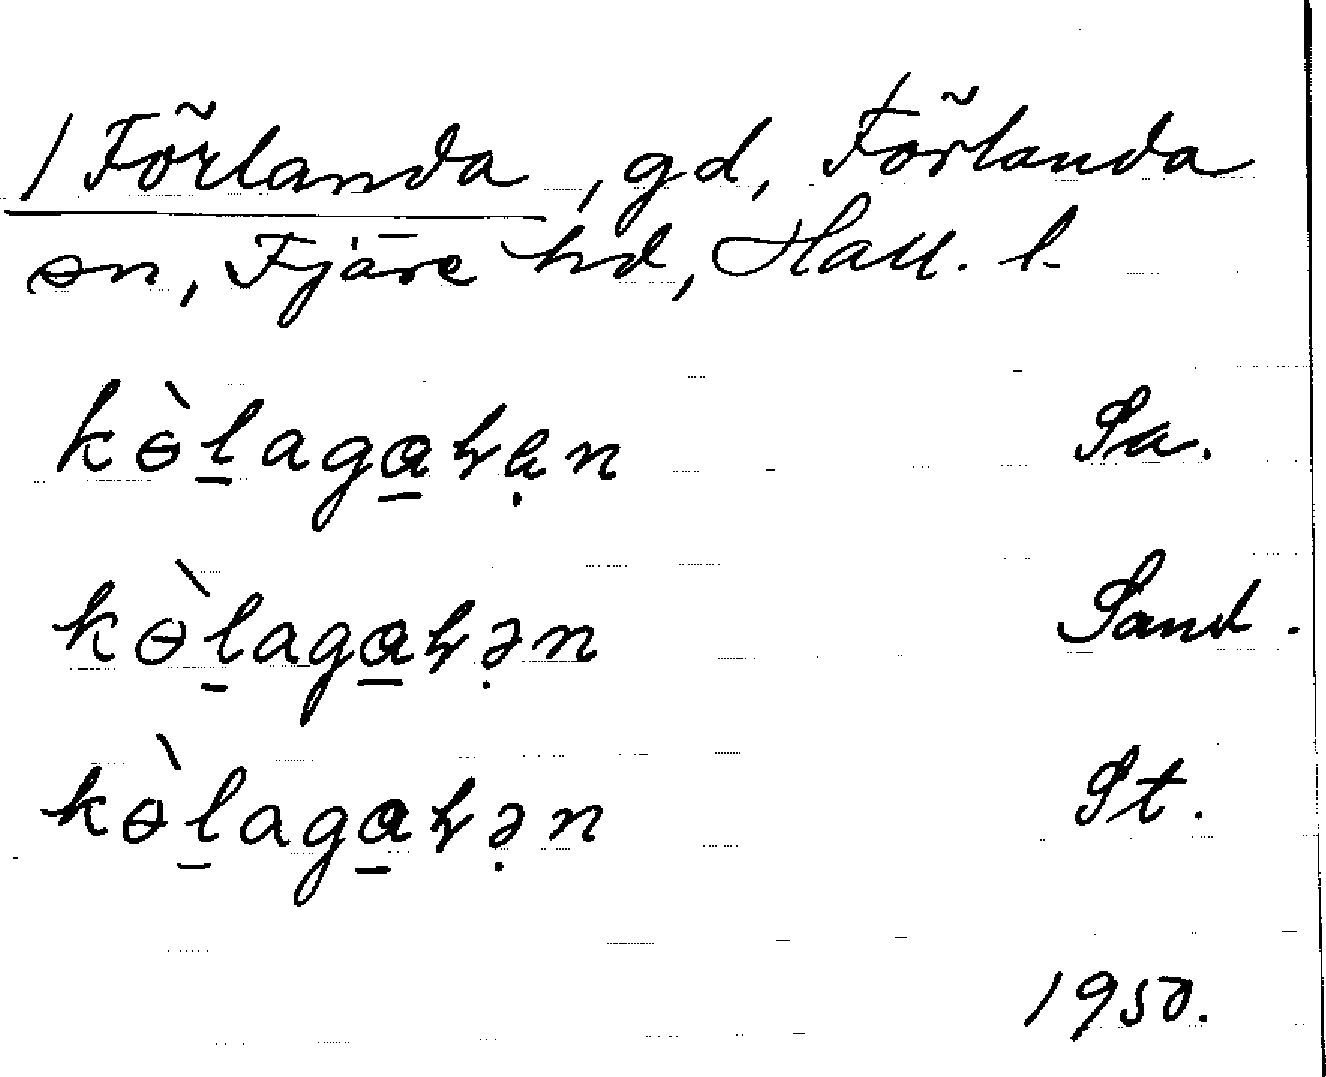 1 Förlanda, gd, Förlanda
sn, Fjäre hd, Hall. l.
kɵ̀l̠aga̠ꞕạn Sa.
kɵ̀l̠aga̠ꞕə̣n Sand.
kɵ̀l̠aga̠ꞕə̣n St.
1950.